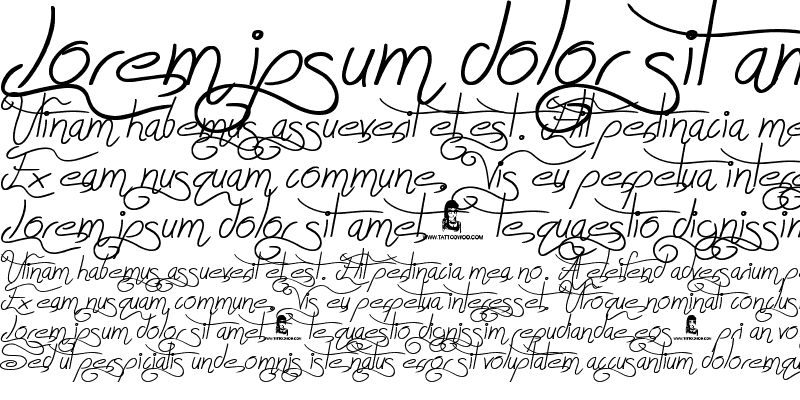 Lorem ipsum dolor sit am
Utinam habemus assueverit et est. Elit pertinacia me
Ex eam nusquam commune, Vis eu perpetua interes
Lorem ipsum dolor sit amet WWW.TATTOOWOO.COM te quaestio dignissim
Utinam habemus assueverit et est. Elit pertinacia mea no. At eleifend adversarium p
Ex eam nusquam commune, Vis eu perpetua interesset. Utroque nominati conclus
Lorem ipsum dolor sit amet WWW.TATTOOWOO.COM te quaestio dignissim repudiandae eos WWW.TATTOOWOO.COM pri an vo
Sed ut perspiciatis unde omnis iste natus error sit voluptatem accusantium doloremqu